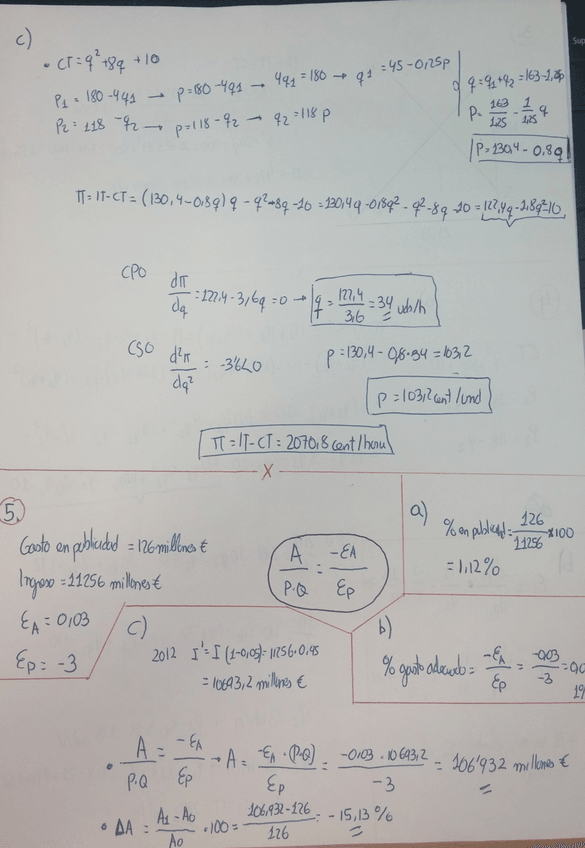 c)
• CT = q² + 8q + 10
P₁ = 180 - 4q₁ → p = 180 - 4q₁ → 4q₁ = 180 → q₁ = 45 - 0,25p
P₂ = 118 - q₂ → p = 118 - q₂ → q₂ = 118 p
q = q₁ + q₂ = 163 - 1,25p
P = 163/1,25 - 1/1,25 q
P = 130,4 - 0,8q
Π = IT - CT = (130,4 - 0,8q) q - q² - 8q - 10 = 130,4q - 0,8q² - q² - 8q - 10 = 122,4q - 1,8q² - 10
CPO
dΠ/dq = 122,4 - 3,6q = 0 → q = 122,4/3,6 = 34 uds/h
CSO
d²Π/dq² = -3'6 < 0
P = 130,4 - 0,8·34 = 103,2
P = 103,2 cent/und
Π = IT - CT = 2070,8 cent/hora
X
5.
Gasto en publicidad = 126 millones €
Ingreso = 11256 millones €
ε_A = 0,03
ε_P = -3
A/P·Q = -ε_A/ε_P
a)
% en publicidad = 126/11256 × 100
= 1,12%
b)
% gasto adecuado = -ε_A/ε_P = -0,03/-3 =
c)
2012 I' = I (1 - 0,05) = 11256 · 0,95
= 10693,2 millones €
• A/P·Q = -ε_A/ε_P → A = -ε_A · (P·Q)/ε_P = -0,03 · 10693,2/-3 = 106'932 millones €
• ΔA = A₁ - A₀/A₀ · 100 = 106,932 - 126/126 = -15,13%